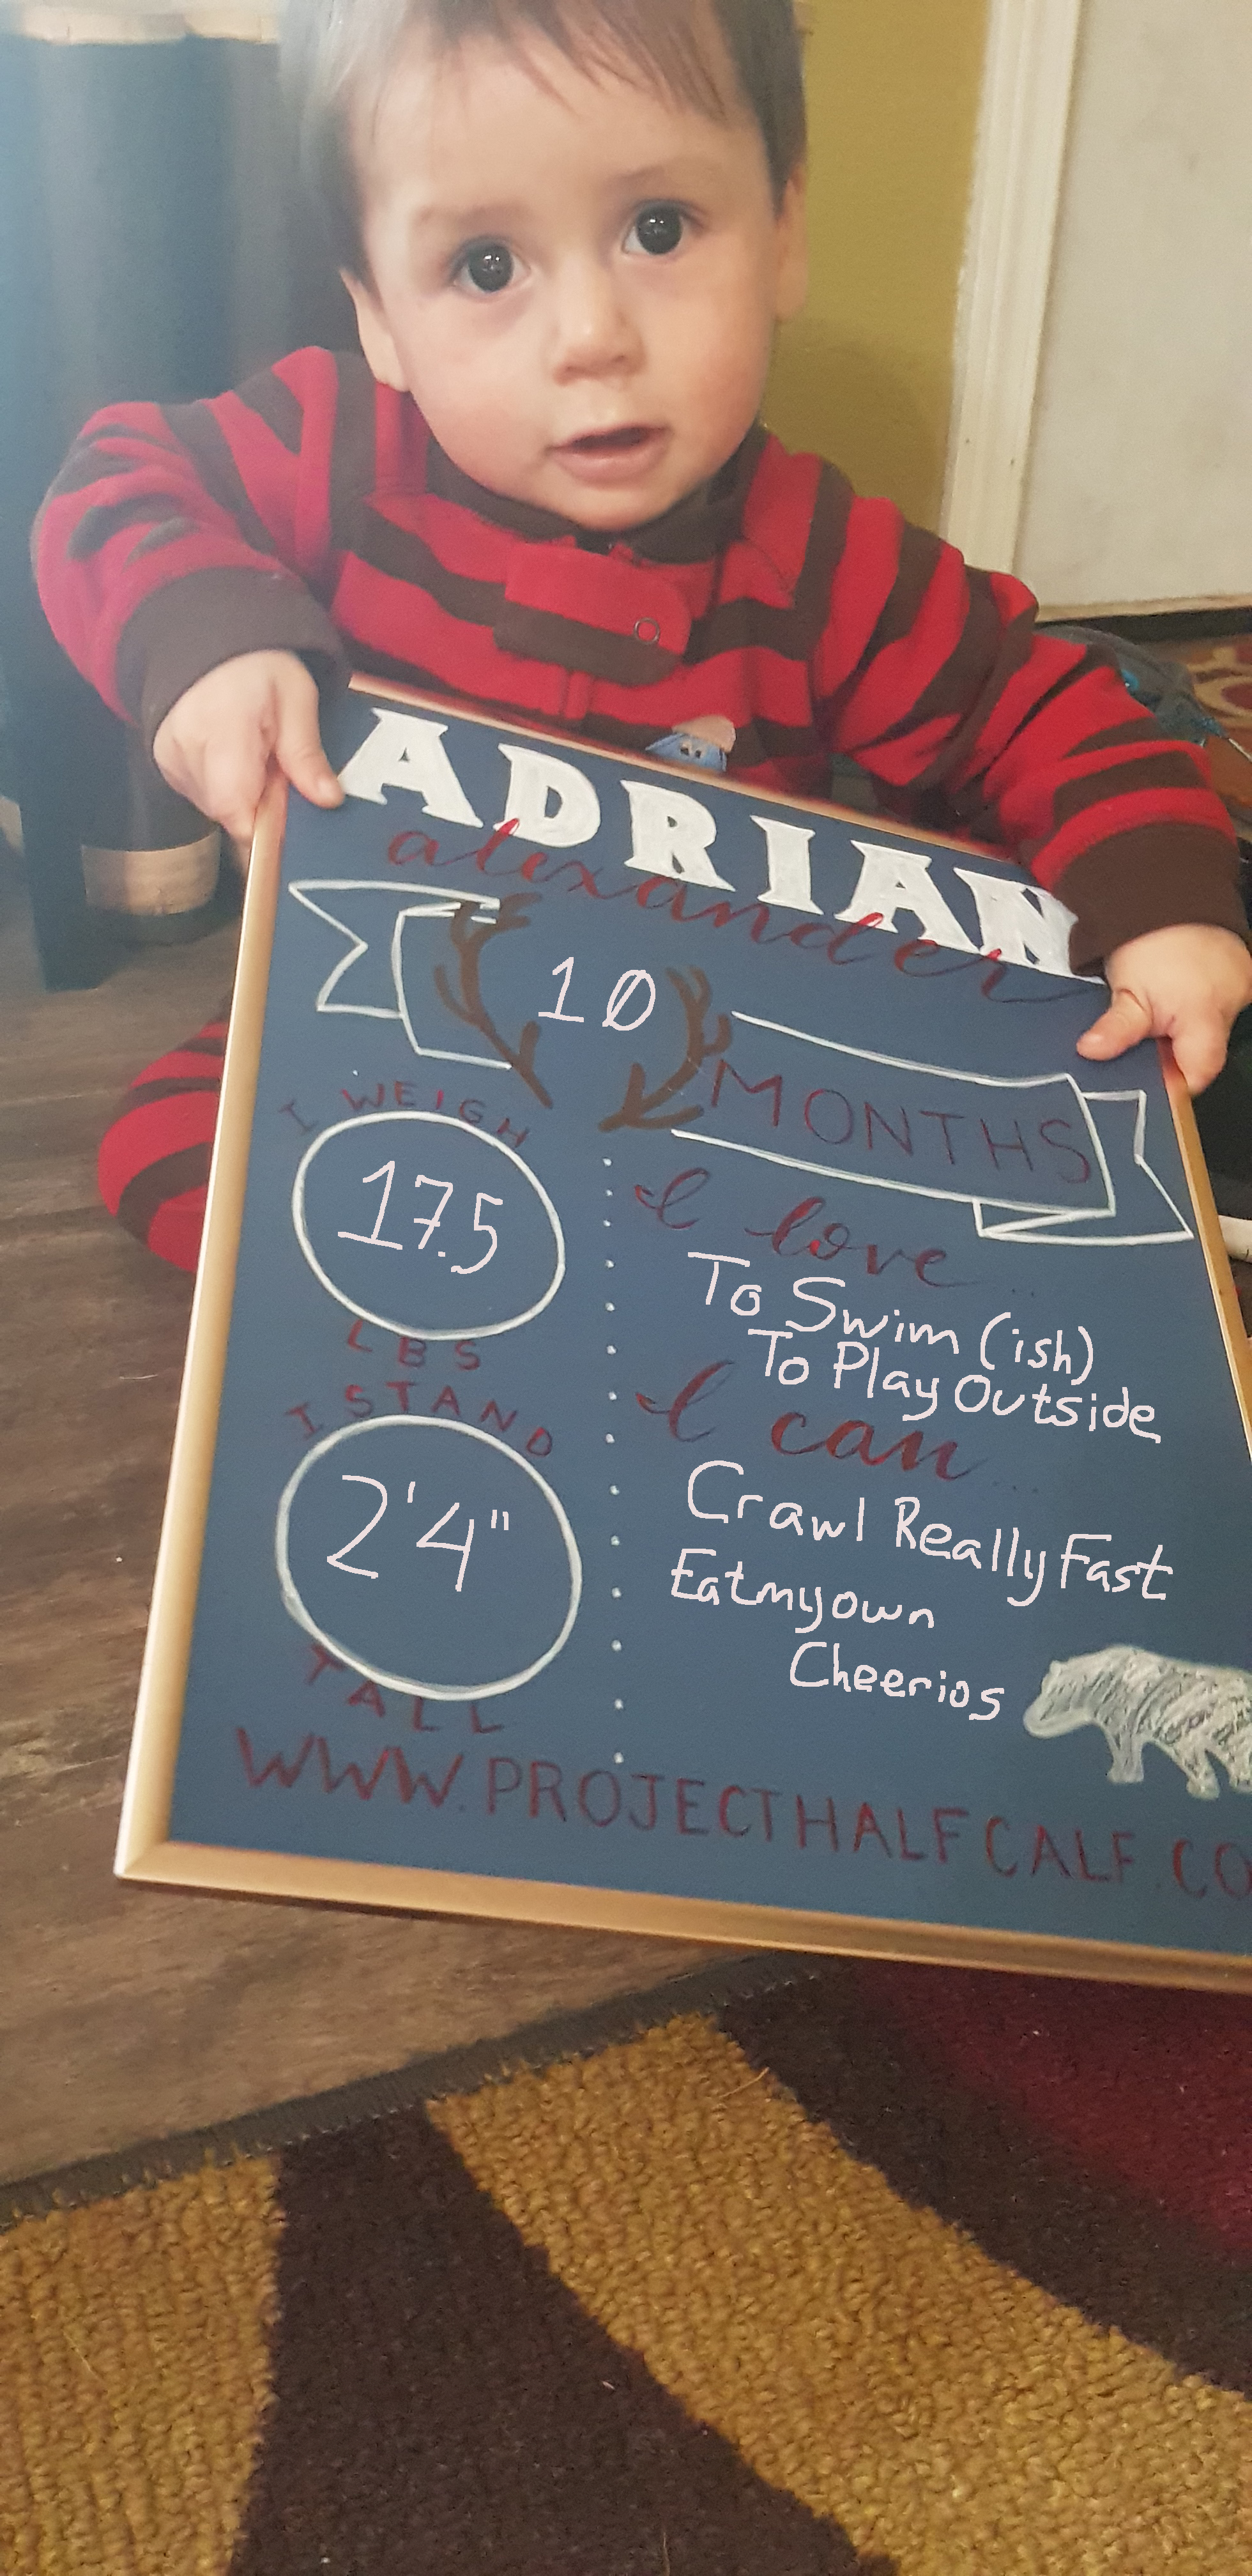 ADRIAN
alexander
10
MONTHS
I WEIGH
17.5
LBS
I STAND
2'4"
TALL
I love...
To Swim (ish)
To Play Outside
I can...
Crawl Really Fast
Eat my own
Cheerios
WWW.PROJECTHALFCALF.CO